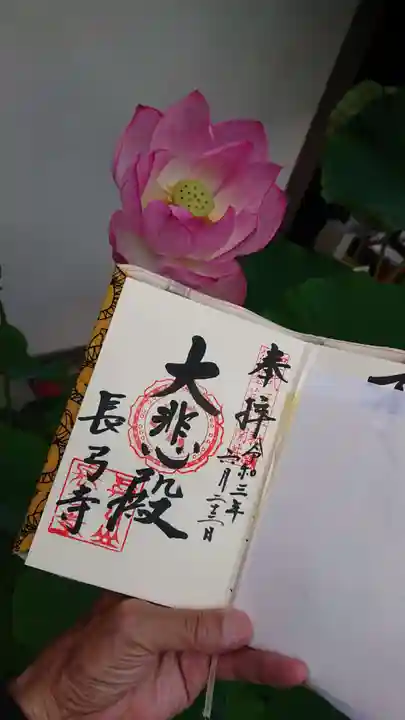 奉拝
令和三年
六月二三日
大悲殿
長弓寺